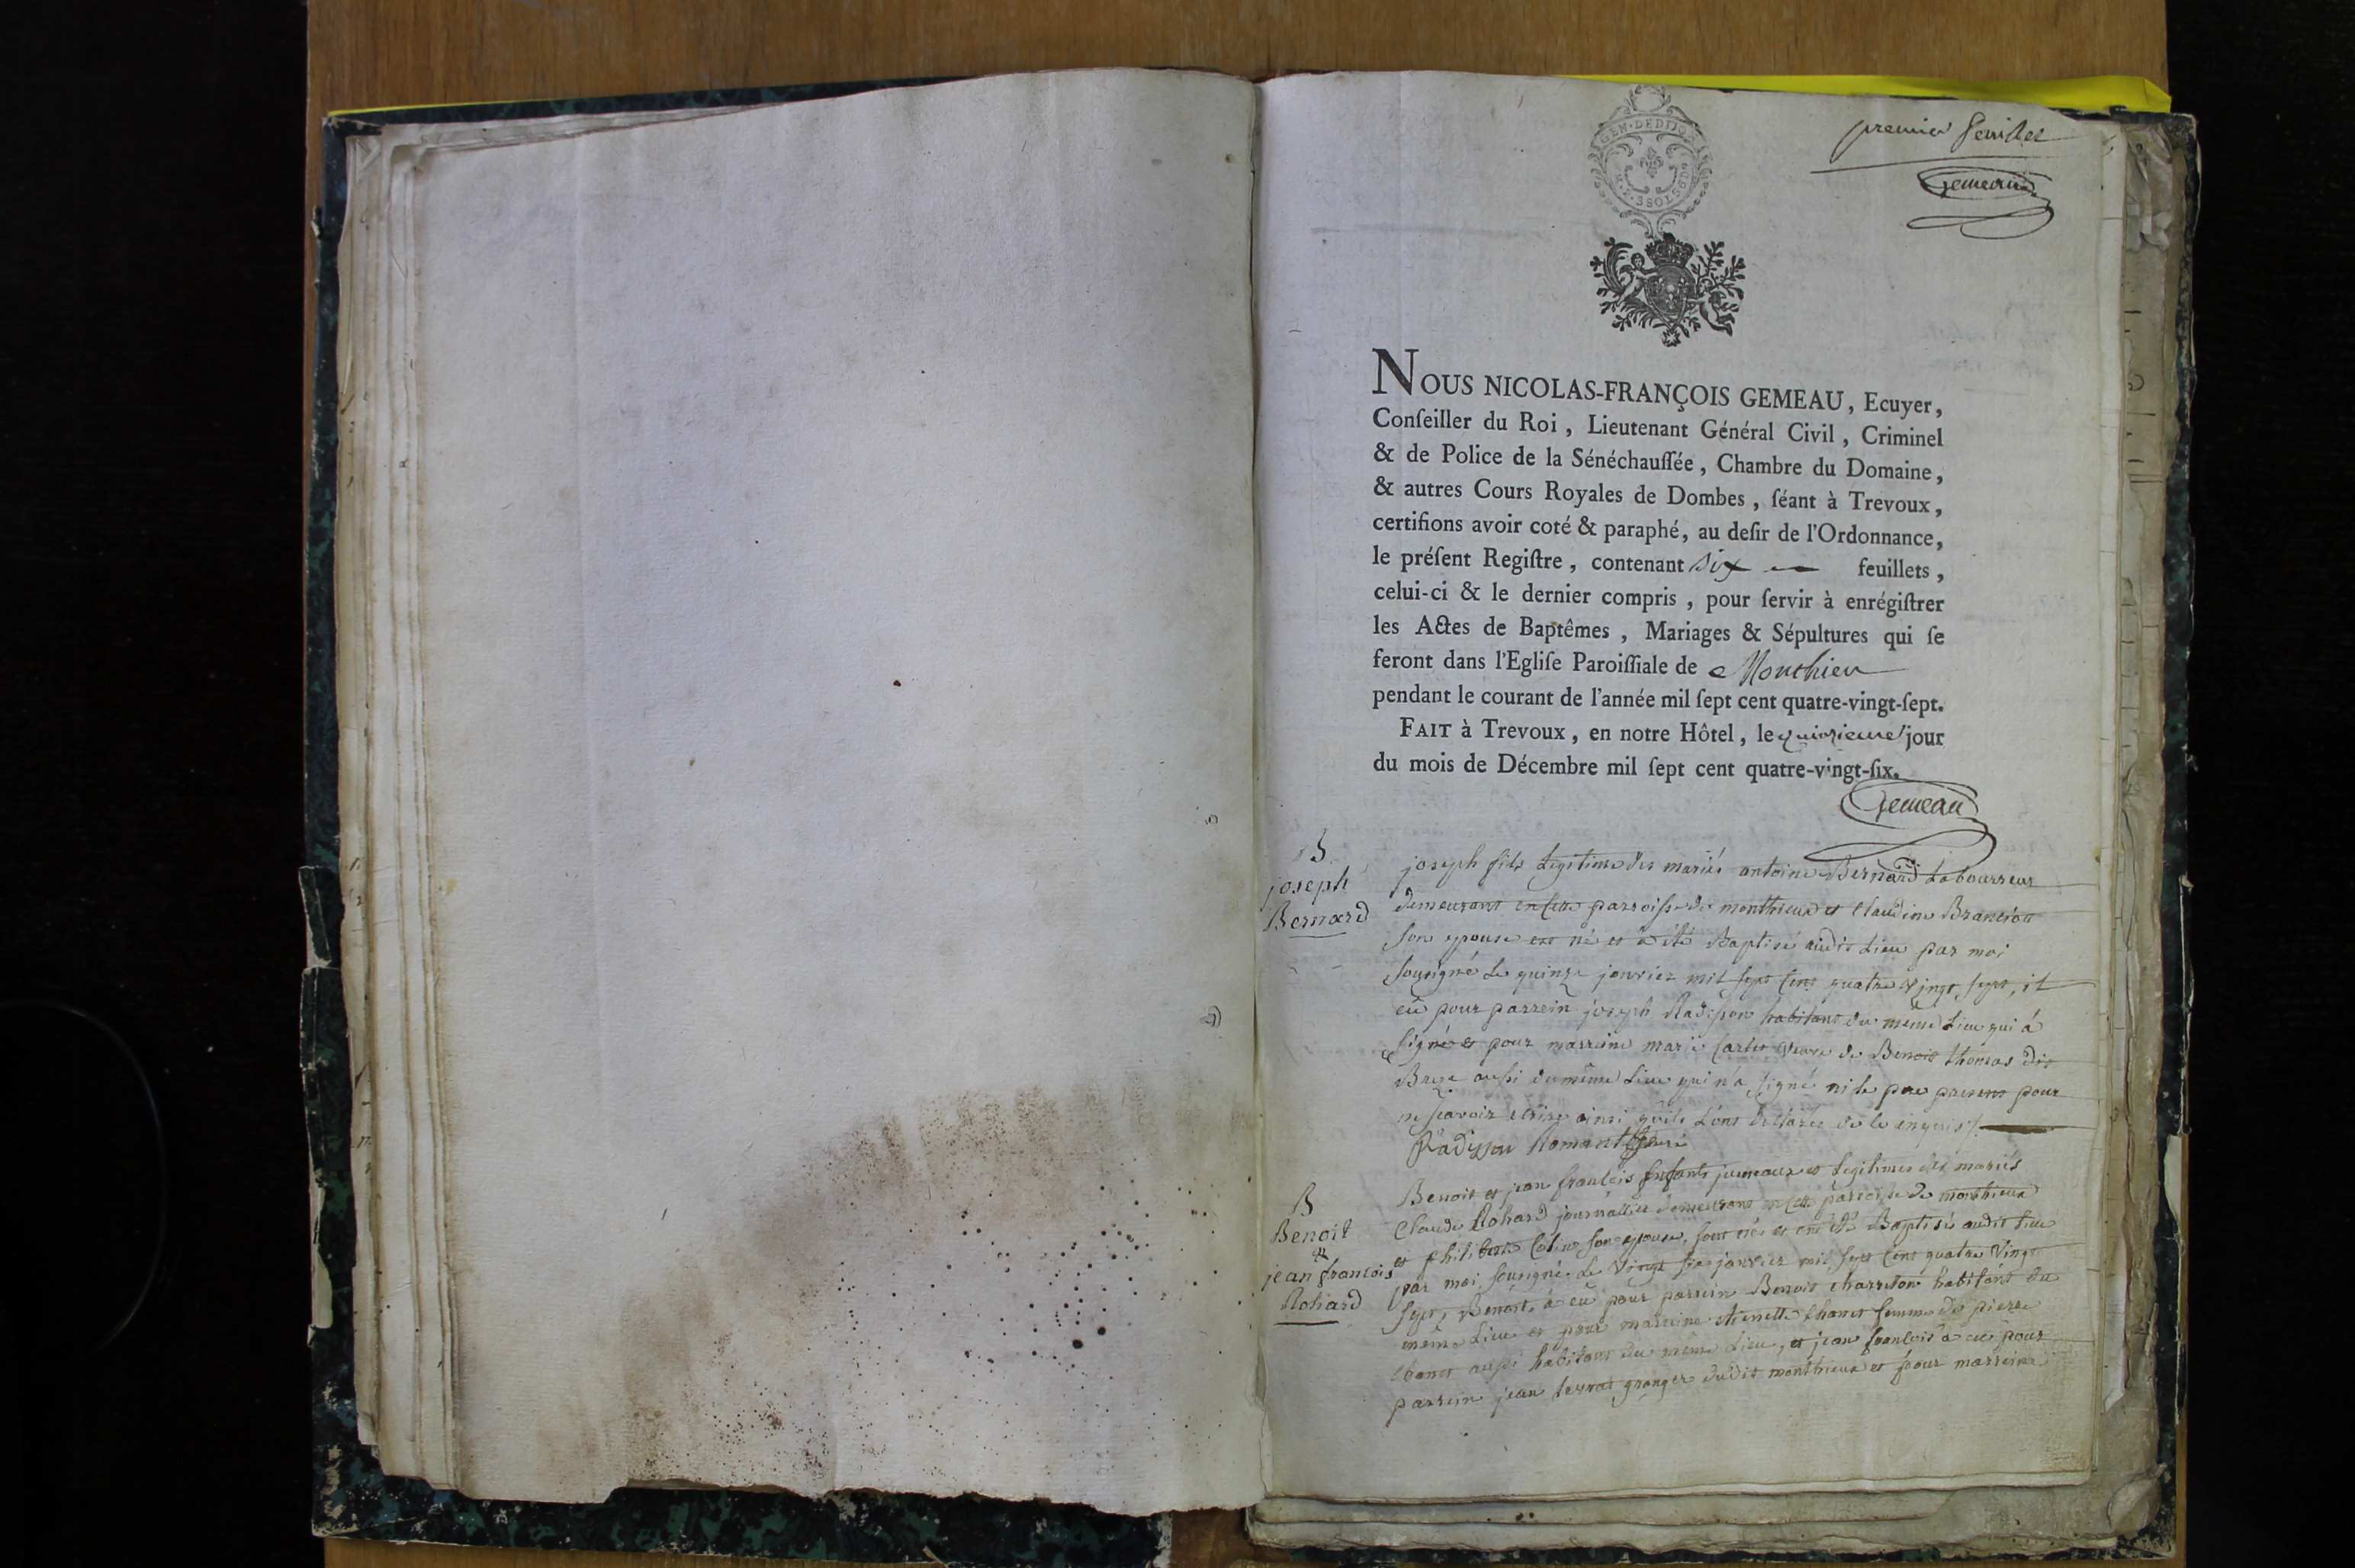 GEN. DEDIJON
3 SOLS
premier feuillet
Gemeau
NOUS NICOLAS-FRANÇOIS GEMEAU, Ecuyer,
Conſeiller du Roi, Lieutenant Général Civil, Criminel
& de Police de la Sénéchauſſée, Chambre du Domaine,
& autres Cours Royales de Dombes, ſéant à Trevoux,
certifions avoir coté & paraphé, au deſir de l'Ordonnance,
le préſent Regiſtre, contenant six feuillets,
celui-ci & le dernier compris, pour ſervir à enrégiſtrer
les Actes de Baptêmes, Mariages & Sépultures qui ſe
feront dans l'Egliſe Paroiſſiale de Monthieu
pendant le courant de l'année mil ſept cent quatre-vingt-ſept.
FAIT à Trevoux, en notre Hôtel, le quinzieme jour
du mois de Décembre mil ſept cent quatre-vingt-ſix.
Gemeau
B
joseph
Bernard
joseph fils legitime des mariés antoine Bernard Labourreur
demeurant en cette parroisse de monthieux et Claudine
son epouse est né et a été Baptisé audit Lieu par moi
sousigné le quinze janvier mil sept cent quatre vingt sept, il
eû pour parrein joseph Radisson habitant du même Lieu qui à
signé et pour marreine marie veuve de Benoit thomas dit
aussi du même Lieu qui n'a signé ni le pere present pour
ne scavoir ecrire ainsi qu'ils l'ont declaré de ce enquis /.
Radisson Romant Curé
B
Benoit
et
jean francois
Rohard
Benoit et jean francois Enfants jumeaux et legitimes des mariés
Claude Rohard journallier demeurant en cette parroisse de monthieux
et philiberte son epouse, sont nés et ont été Baptisés audit Lieu
par moi sousigné le vingt six janvier mil sept cent quatre vingt
sept, Benoit à eû pour parrein Benoit charreton habitant du
même Lieu et pour marreine etiennette Chanet femme de pierre
Chanet aussi habitant du même Lieu, et jean francois à eû pour
parrein jean granger dudit monthieux et pour marreine